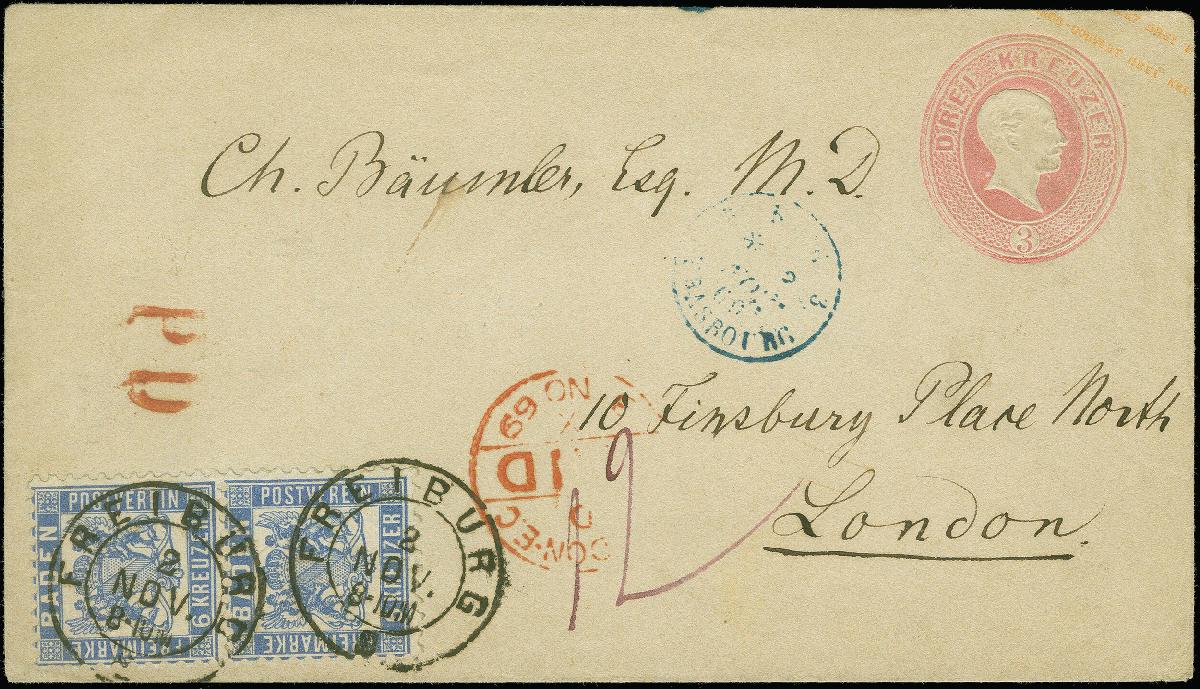 DREI KREUZER
3
Ch. Bäumler, Esq. M. D.
3
2
STRASBOURG
PD
10 Finsbury Place North
London
12
NO 69
1D
FREIBURG
2
NOV.
8-10
FREIBURG
2
NOV.
8-10
POSTVEREIN
BADEN
6 KREUZER
FREIMARKE
POSTVEREIN
BADEN
KREUZER
FREIMARKE